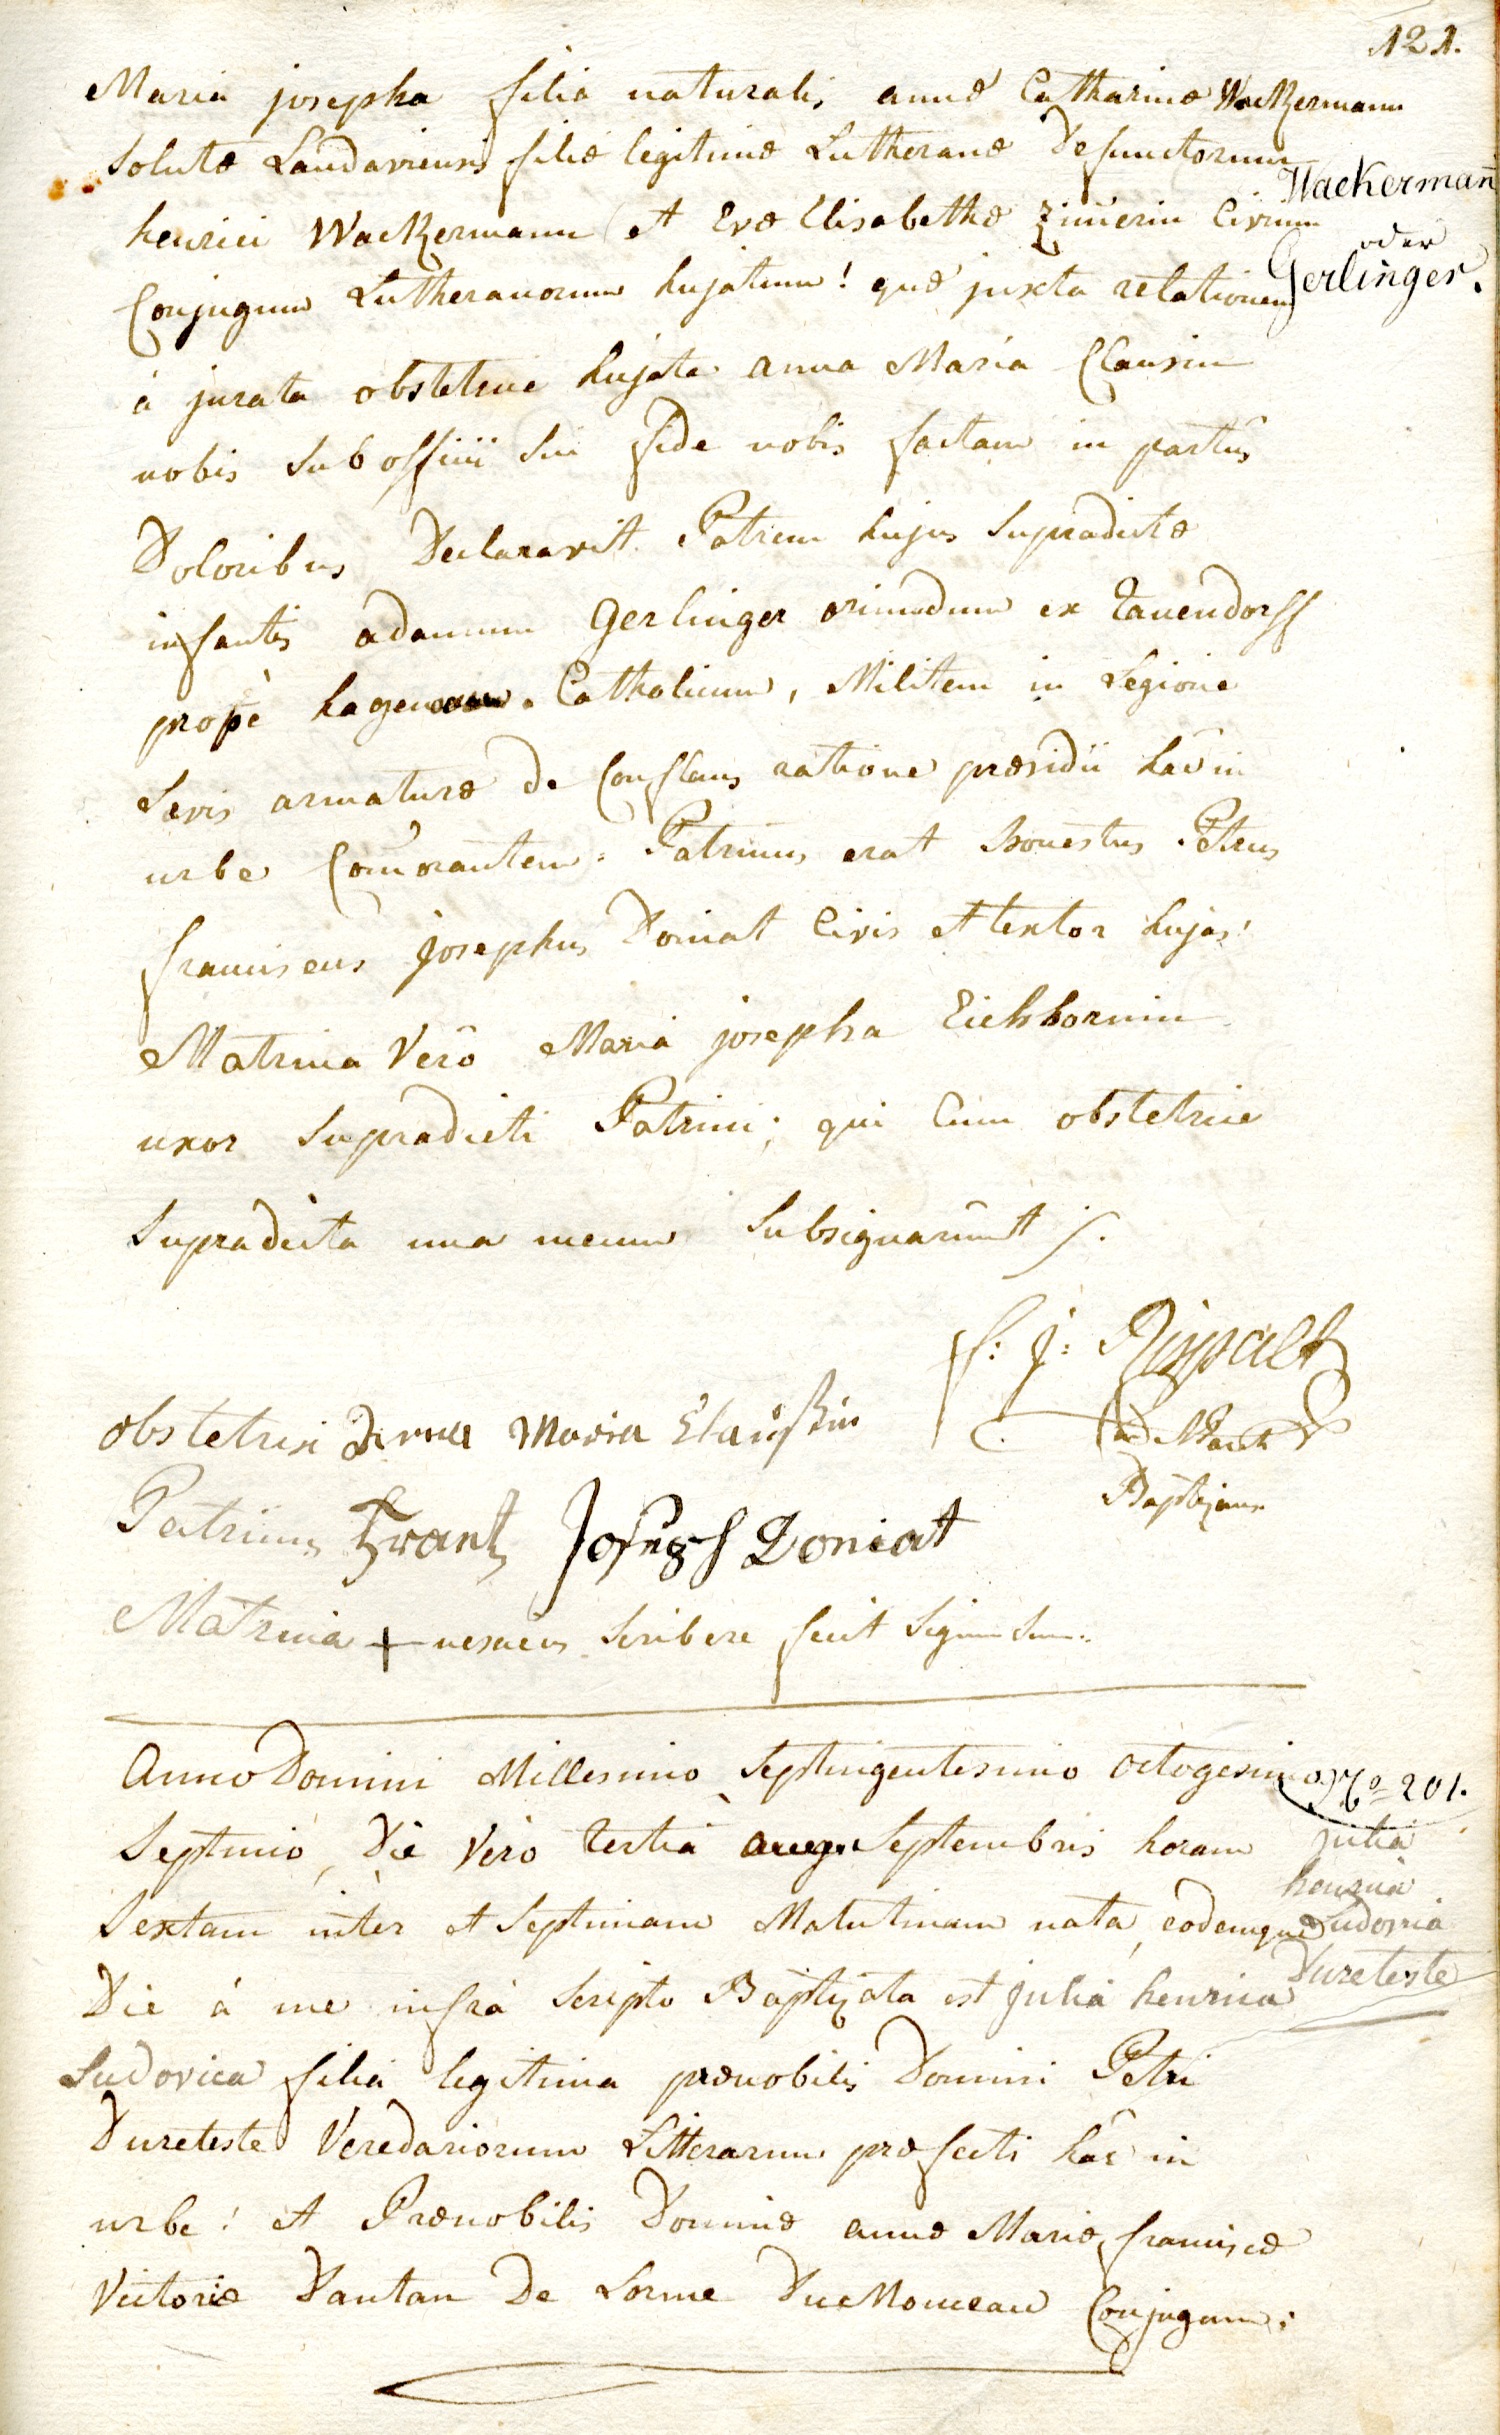 121.
Maria josepha filia naturalis annæ Catharinæ Wackermann
solutæ Landaviensis filiæ legitimæ Lutheranæ Defunctorum
Wackermañ
oder
Gerlinger.
henrici Wackermann et Evæ Elisabethæ Zim̄erin Civium
Conjugum Lutheranorum hujatum! quæ juxta relationem
à jurata obstetrice hujate anna Maria Clausin
nobis sub officii sui fide nobis factam in partûs
Doloribus Declaravit Patrem hujus supradictæ
infantis adamum Gerlinger oriundum ex Tauendorff
propè hagenoam Catholicum, Militem in Legione
Levis armaturæ de Conflans ratione præsidii hâc in
urbe Com̄orantem: Patrinus erat honestus Petrus
franciscus josephus Doniat Civis et textor hujas!
Matrina Verò Maria josepha Eichhornin
uxor supradicti Patrini; qui Cum obstetrice
supradicta una mecum subsignarunt ./.
f: j: Rippalt
Baptizans
obstetrix Anna Maria Claußin
Patrinus Frantz Joseph Doniat
Matrina + nesciens scribere fecit signum suum.
Anno Domini Millesimo septingentesimo octogesimo
Nº= 201.
julia
henrica
Ludovica
Dureteste
septimo, Die Verò tertiâ septembris horam
sextam inter et septimam Matutinam nata, eodemque
Die à me infrà scripto Baptizata est julia henrica
Ludovica filia legitima prænobilis Domini Petri
Dureteste Veredariorum Litterarum præfecti hâc in
urbe! et Prænobilis Dominæ annæ Mariæ franciscæ
Victoriæ Dautan De Lorme DucMonceau Conjugum;